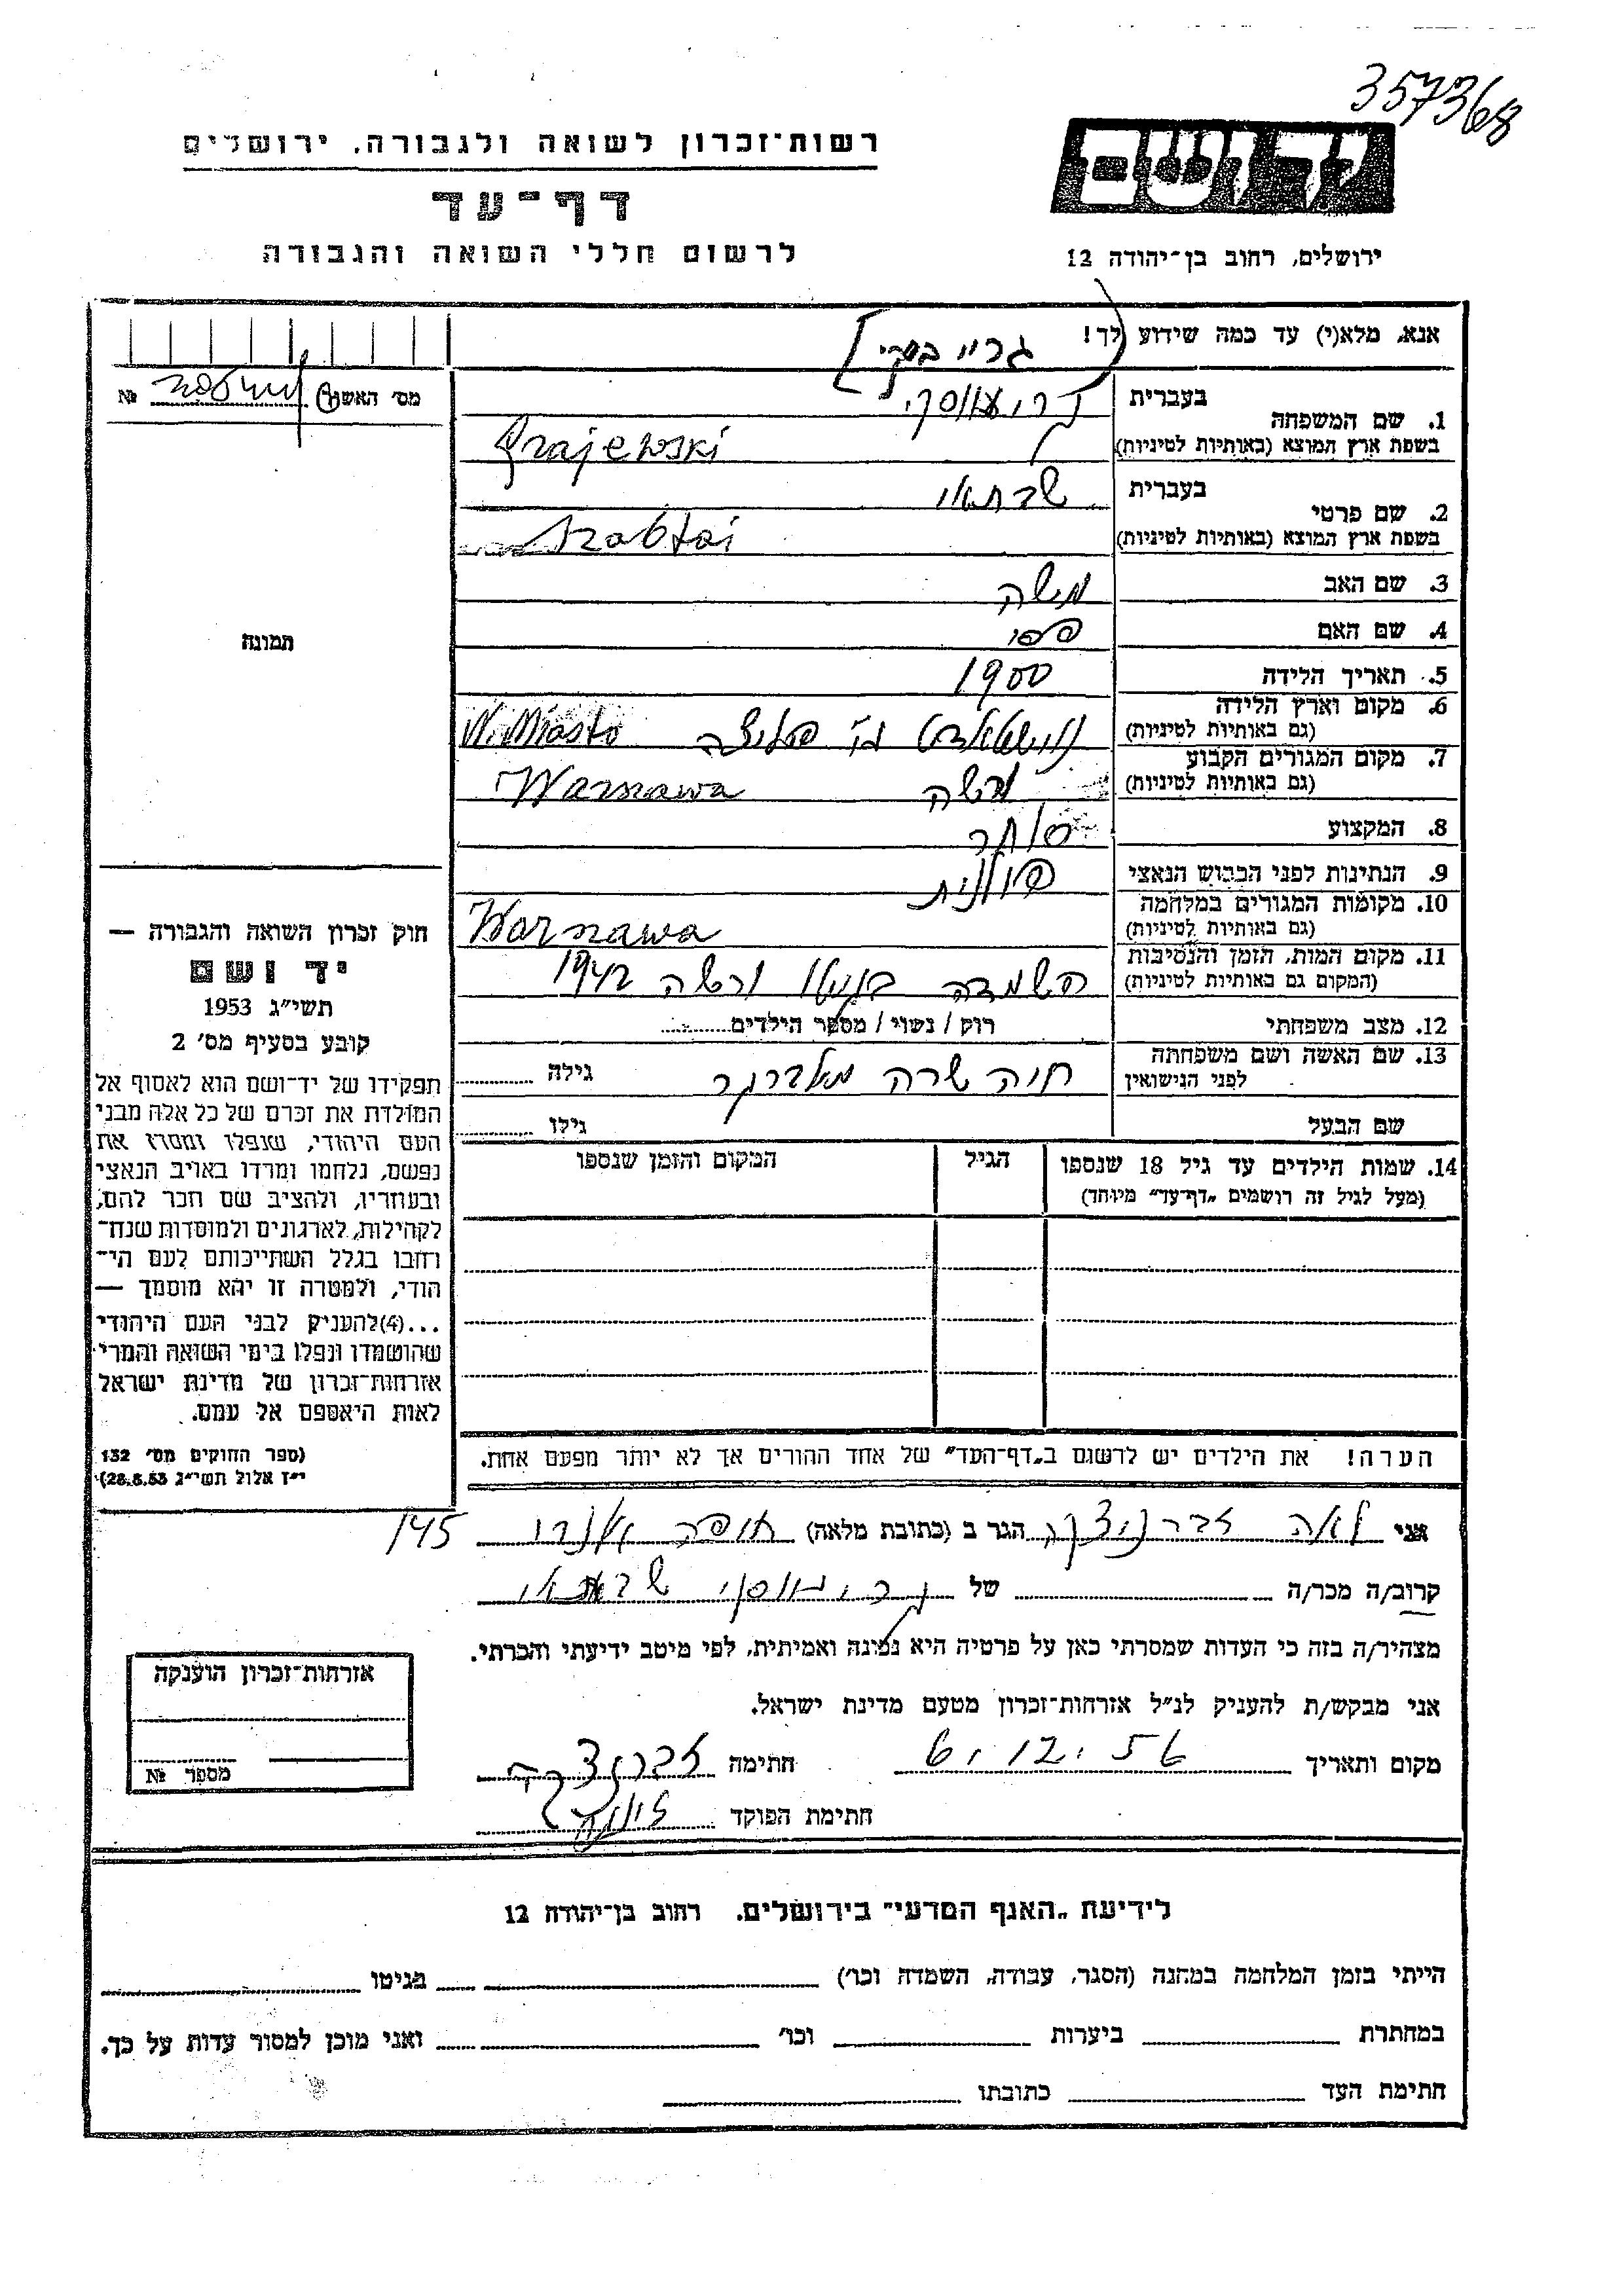 357368
רשות־זכרון לשואה ולגבורה, ירושלים
דף־עד
לרשום חללי השואה והגבורה
ידושם
ירושלים, רחוב בן־יהודה 12
אנא, מלא(י) עד כמה שידוע לך!
מס' האשה №
1. שם המשפחה
בעברית
בשפת ארץ המוצא (באותיות לטיניות)
Grajewski
2. שם פרטי
בעברית שבתאי
בשפת ארץ המוצא (באותיות לטיניות)
Szabtai
3. שם האב משה
4. שם האם פסי
5. תאריך הלידה 1900
6. מקום וארץ הלידה
(גם באותיות לטיניות)
N. Miasto
7. מקום המגורים הקבוע
(גם באותיות לטיניות)
ורשה Warszawa
8. המקצוע סוחר
9. הנתינות לפני הכבוש הנאצי פולנית
10. מקומות המגורים במלחמה
(גם באותיות לטיניות)
Warszawa
11. מקום המות, הזמן והנסיבות
(המקום גם באותיות לטיניות)
השמדה בגיטו ורשה 1942
12. מצב משפחתי רוק / נשוי / מספר הילדים
13. שם האשה ושם משפחתה
לפני הנישואין
חוה שרה גילה
שם הבעל גילו
14. שמות הילדים עד גיל 18 שנספו
(מעל לגיל זה רושמים „דף־עד" מיוחד)
הגיל
המקום והזמן שנספו
הערה! את הילדים יש לרשום ב„דף־העד" של אחד ההורים אך לא יותר מפעם אחת.
תמונה
חוק זכרון השואה והגבורה —
יד ושם
תשי"ג 1953
קובע בסעיף מס' 2
תפקידו של יד־ושם הוא לאסוף אל
המולדת את זכרם של כל אלה מבני
העם היהודי, שנפלו ומסרו את
נפשם, נלחמו ומרדו באויב הנאצי
ובעוזריו, ולהציב שם וזכר להם,
לקהילות, לארגונים ולמוסדות שנח־
רבו בגלל השתייכותם לעם הי־
הודי, ולמטרה זו יהא מוסמך —
...(4) להעניק לבני העם היהודי
שהושמדו ונפלו בימי השואה והמרי
אזרחות־זכרון של מדינת ישראל
לאות היאספם אל עמם.
(ספר החוקים מס' 132
י"ז אלול תשי"ג 28.8.53)
אני לאה הגר ב (כתובת מלאה) חיפה 145
קרוב/ה מכר/ה של שבתאי
מצהיר/ה בזה כי העדות שמסרתי כאן על פרטיה היא נכונה ואמיתית, לפי מיטב ידיעתי והכרתי.
אני מבקש/ת להעניק לנ"ל אזרחות־זכרון מטעם מדינת ישראל.
מקום ותאריך 6.12.56 חתימה
חתימת הפוקד
אזרחות־זכרון הוענקה
מספר №
לידיעת „האגף המדעי" בירושלים, רחוב בן־יהודה 12
הייתי בזמן המלחמה במחנה (הסגר, עבודה, השמדה וכו') בגיטו
במחתרת ביערות וכו' ואני מוכן למסור עדות על כך.
חתימת העד כתובתו